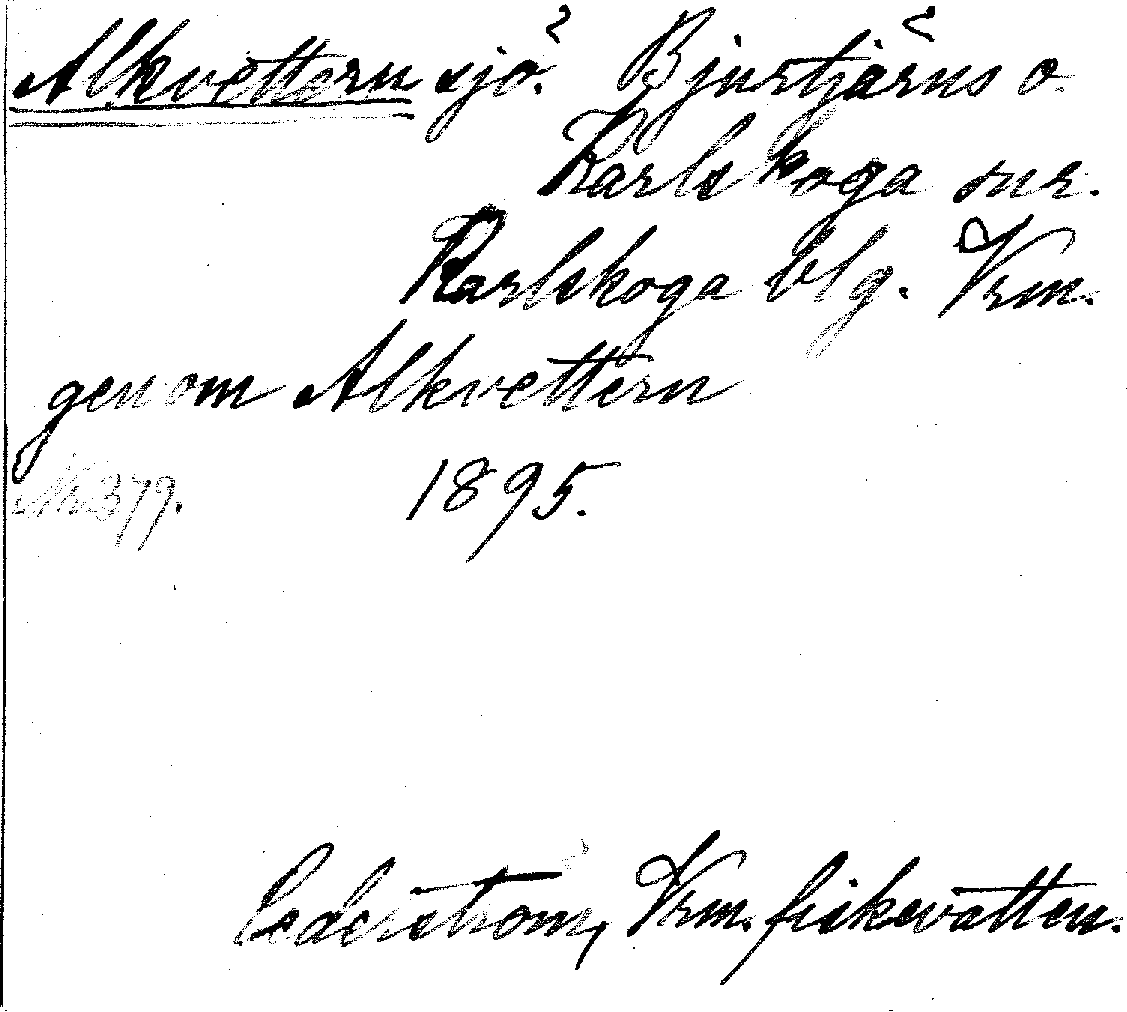 Alkvettern sjö. Bjurtjärns o.
Karlskoga snr.
Karlskoga blg. Vrm.
genom Alkvettern
Nr 379. 1895.
Cederström, Vrm. fiskevatten.